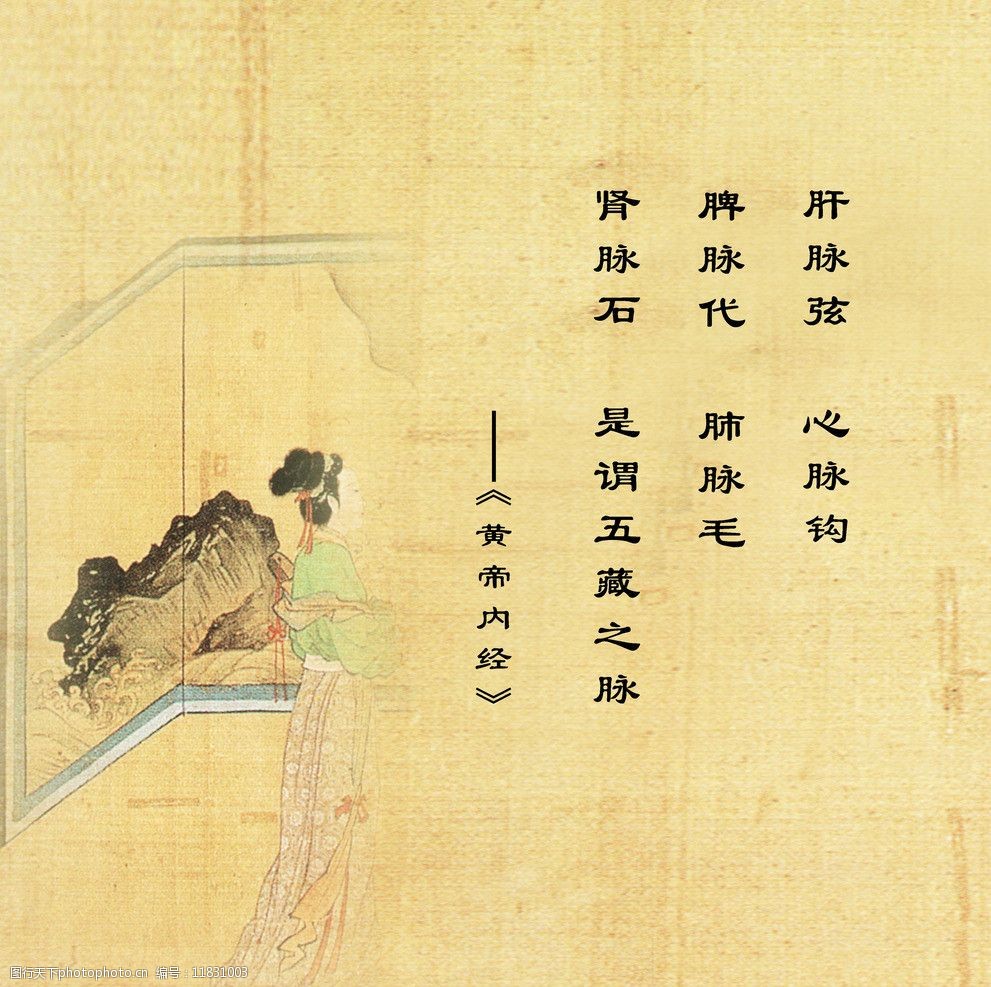 肝脉弦 心脉钩
脾脉代 肺脉毛
肾脉石 是谓五藏之脉
——《黄帝内经》
图行天下photophoto.cn 编号:11831003